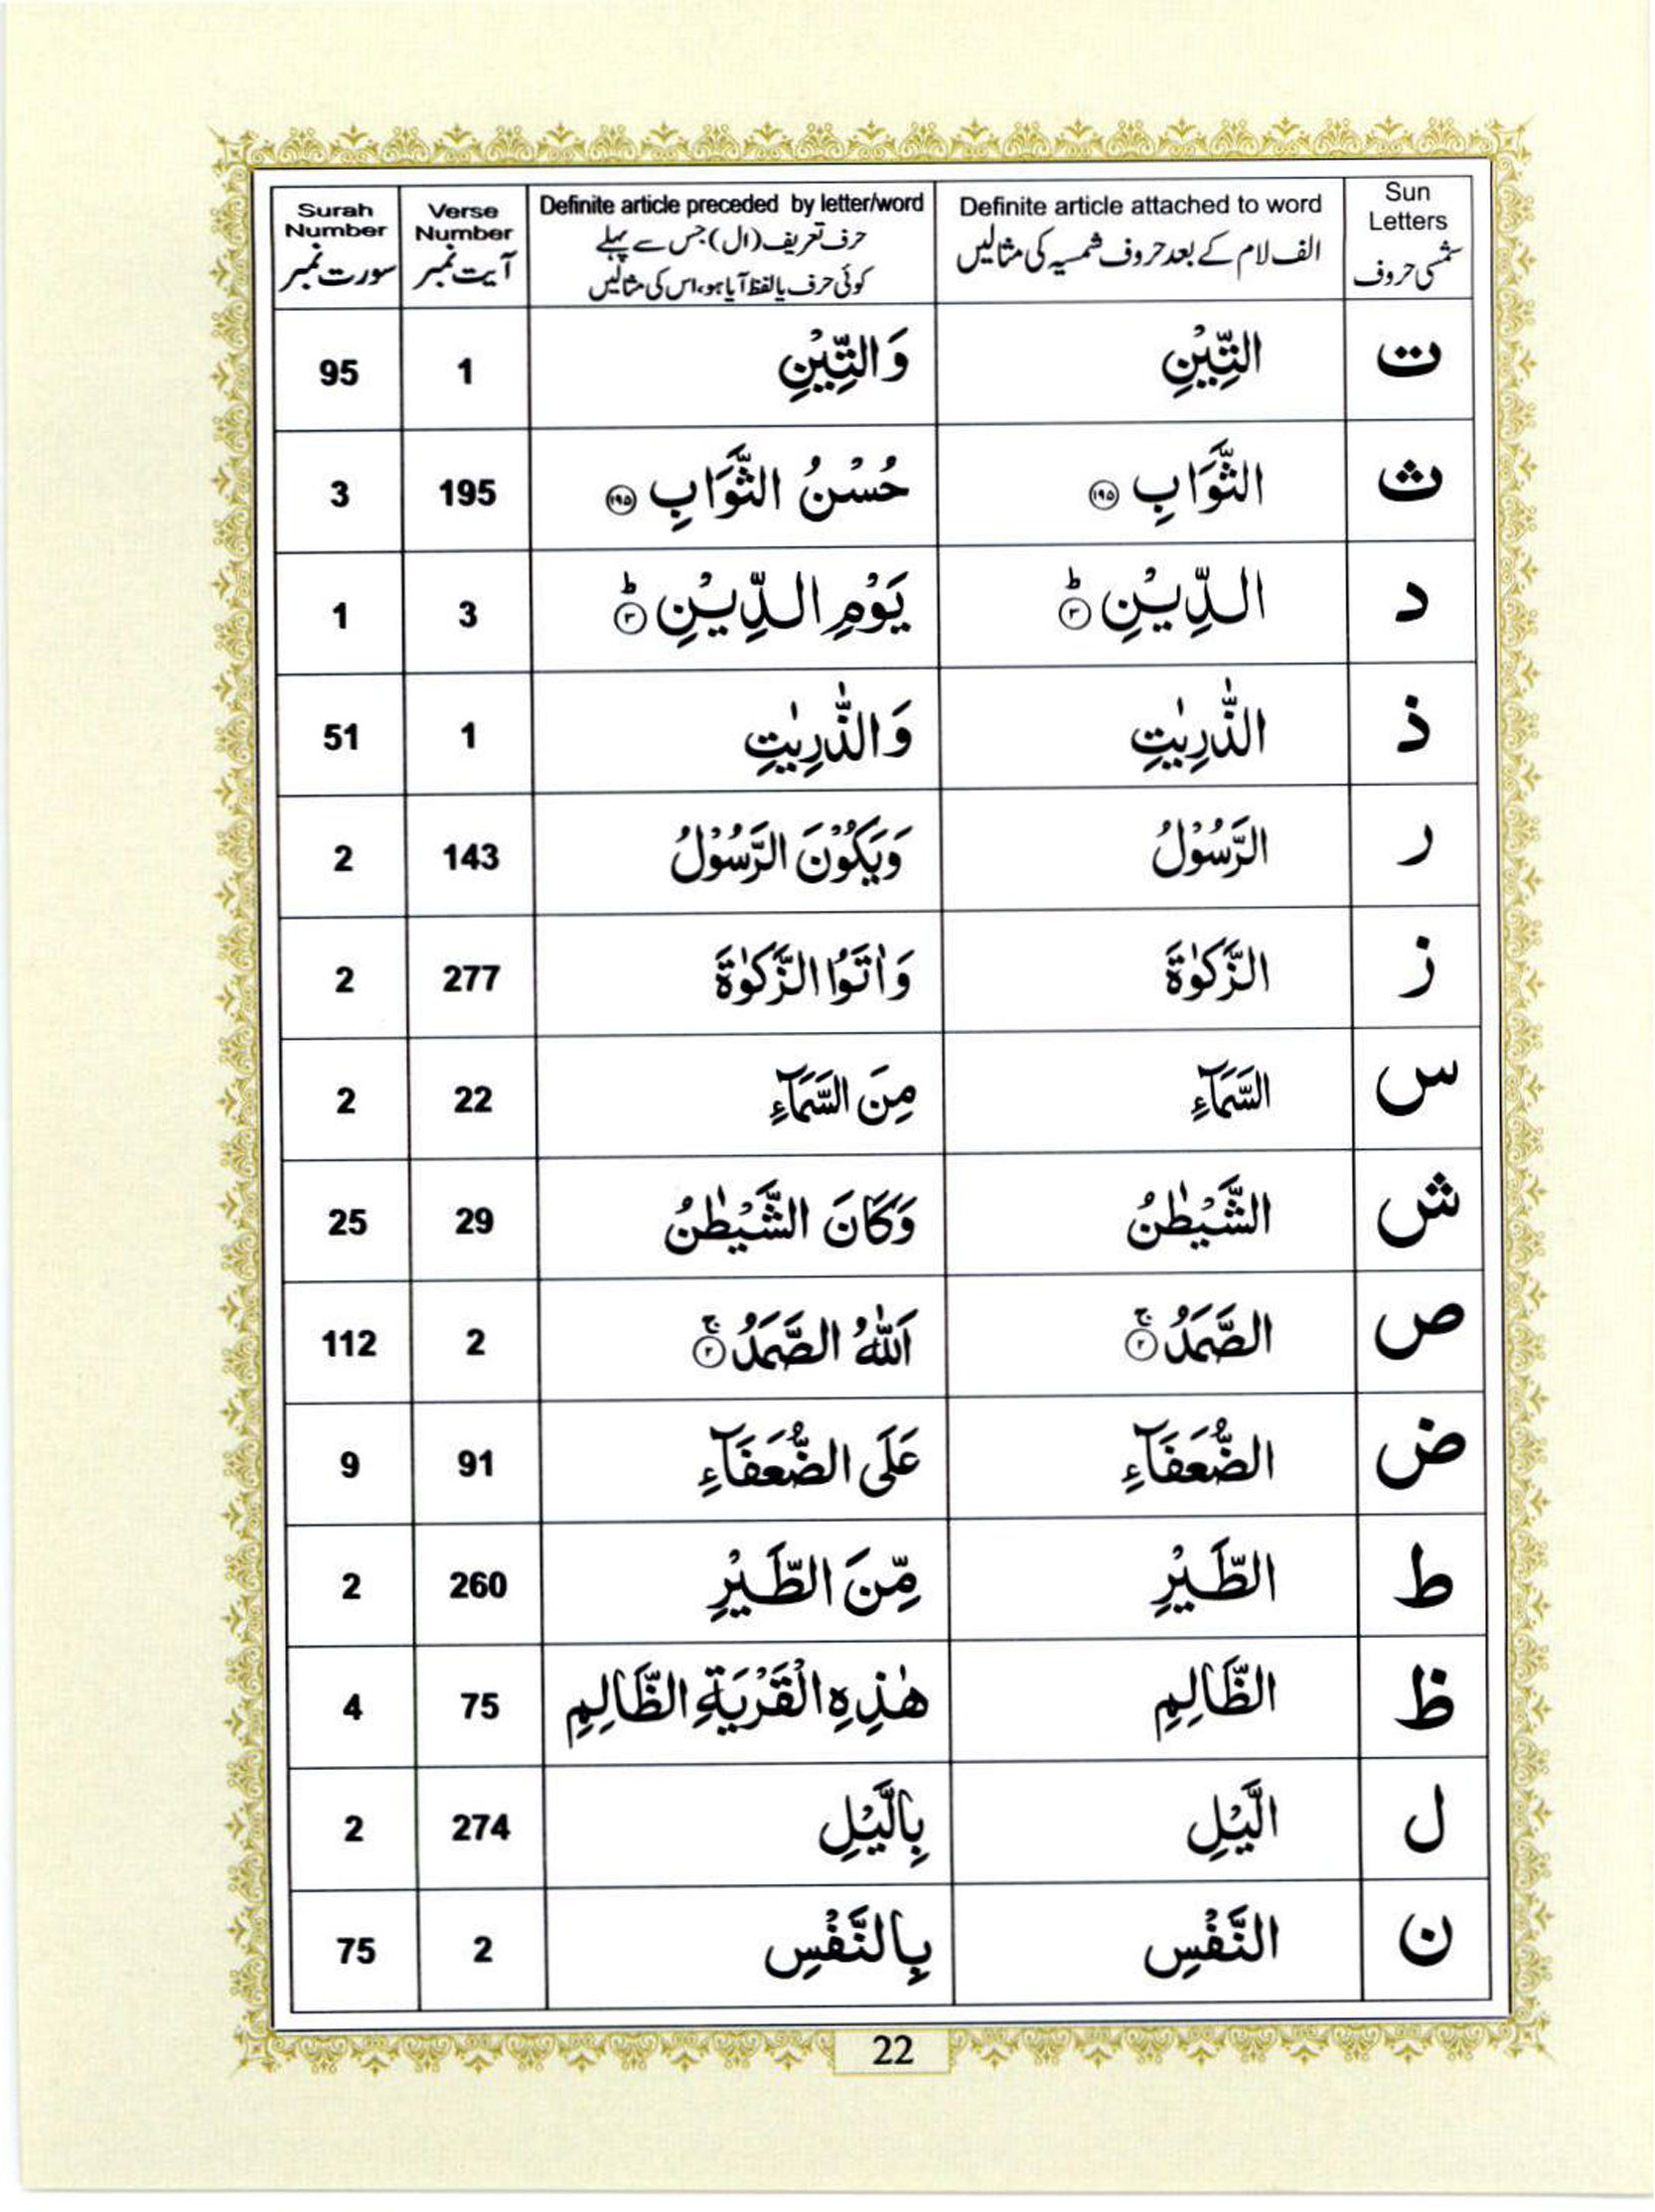 Sun Letters شمسی حروف | Definite article attached to word الف لام کے بعد حروف شمسیہ کی مثالیں | Definite article preceded by letter/word حرف تعریف (ال) جس سے پہلے کوئی حرف یا لفظ آیا ہو، اس کی مثالیں | Verse Number آیت نمبر | Surah Number سورت نمبر
ت | التِّيْنِ | وَالتِّيْنِ | 1 | 95
ث | الثَّوَابِ ۝۱۹۵ | حُسْنُ الثَّوَابِ ۝۱۹۵ | 195 | 3
د | الدِّيْنِ ؕ۝۳ | يَوْمِ الدِّيْنِ ؕ۝۳ | 3 | 1
ذ | الذّٰرِيٰتِ | وَالذّٰرِيٰتِ | 1 | 51
ر | الرَّسُوْلُ | وَيَكُوْنَ الرَّسُوْلُ | 143 | 2
ز | الزَّكٰوةَ | وَاٰتَوُا الزَّكٰوةَ | 277 | 2
س | السَّمَآءِ | مِنَ السَّمَآءِ | 22 | 2
ش | الشَّيْطٰنُ | وَكَانَ الشَّيْطٰنُ | 29 | 25
ص | الصَّمَدُ ۚ۝۲ | اَللّٰهُ الصَّمَدُ ۚ۝۲ | 2 | 112
ض | الضُّعَفَآءِ | عَلَى الضُّعَفَآءِ | 91 | 9
ط | الطَّيْرِ | مِّنَ الطَّيْرِ | 260 | 2
ظ | الظَّالِمِ | هٰذِهِ الْقَرْيَةِ الظَّالِمِ | 75 | 4
ل | الَّيْلِ | بِالَّيْلِ | 274 | 2
ن | النَّفْسِ | بِالنَّفْسِ | 2 | 75
22